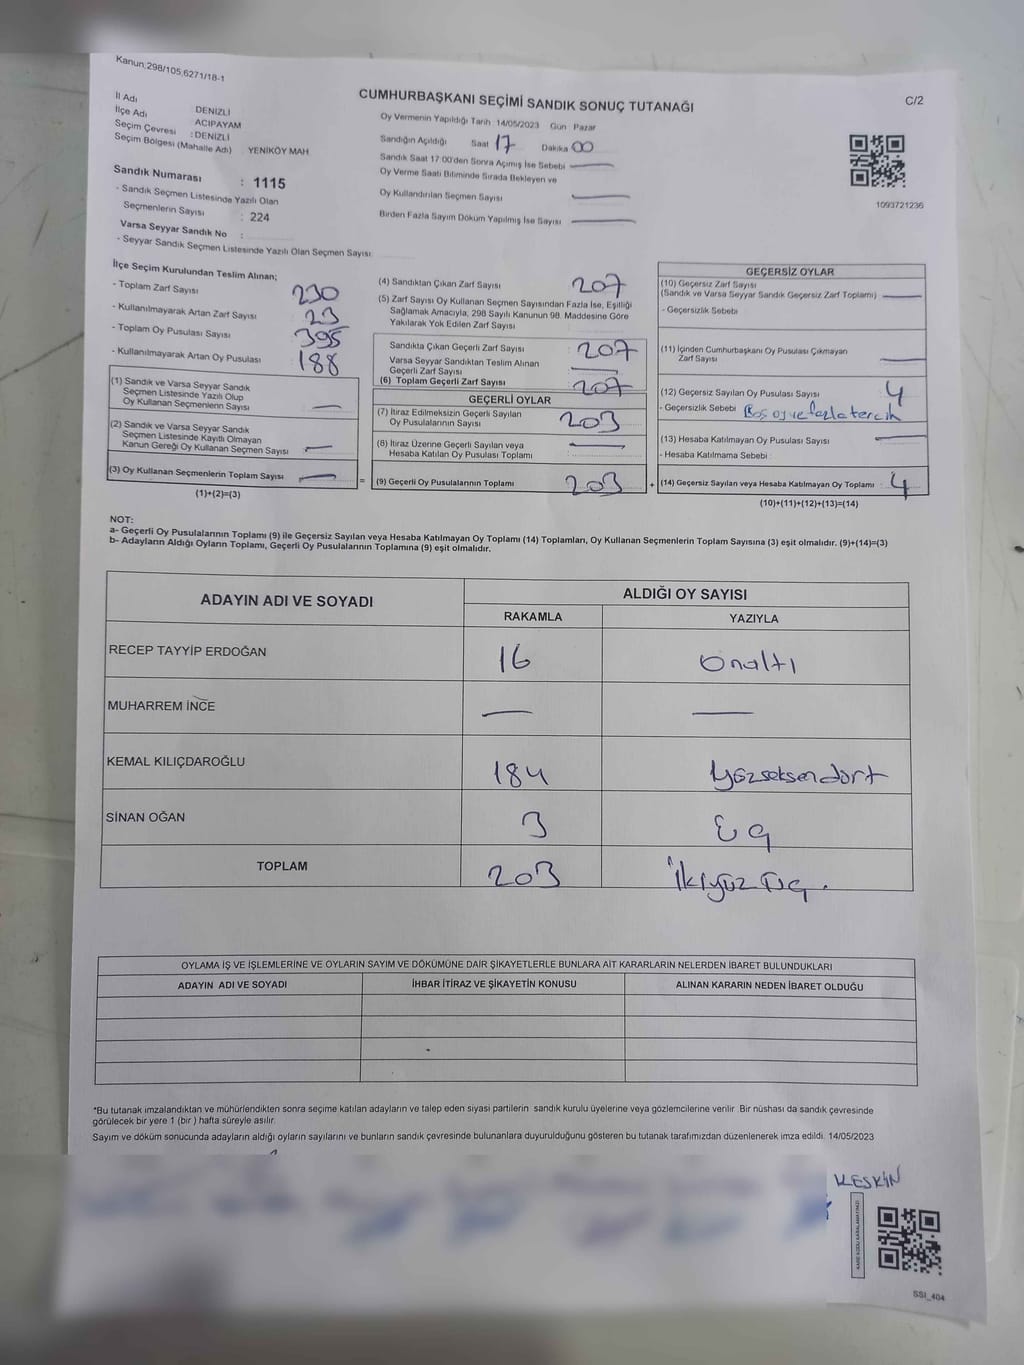 Kanun:298/105,6271/18-1
CUMHURBAŞKANI SEÇİMİ SANDIK SONUÇ TUTANAĞI
C/2
İl Adı : DENİZLİ
İlçe Adı : ACIPAYAM
Seçim Çevresi : DENİZLİ
Seçim Bölgesi (Mahalle Adı) YENİKÖY MAH
Sandık Numarası : 1115
- Sandık Seçmen Listesinde Yazılı Olan
Seçmenlerin Sayısı : 224
Varsa Seyyar Sandık No :
- Seyyar Sandık Seçmen Listesinde Yazılı Olan Seçmen Sayısı:
Oy Vermenin Yapıldığı Tarih 14/05/2023 Gün Pazar
Sandığın Açıldığı Saat 17 Dakika 00
Sandık Saat 17:00'den Sonra Açımış İse Sebebi
Oy Verme Saati Bitiminde Sırada Bekleyen ve
Oy Kullandırılan Seçmen Sayısı
Birden Fazla Sayım Döküm Yapılmış İse Sayısı
1093721236
İlçe Seçim Kurulundan Teslim Alınan;
- Toplam Zarf Sayısı 230
- Kullanılmayarak Artan Zarf Sayısı 23
- Toplam Oy Pusulası Sayısı 395
- Kullanılmayarak Artan Oy Pusulası 188
(1) Sandık ve Varsa Seyyar Sandık
Seçmen Listesinde Yazılı Olup
Oy Kullanan Seçmenlerin Sayısı —
(2) Sandık ve Varsa Seyyar Sandık
Seçmen Listesinde Kayıtlı Olmayan
Kanun Gereği Oy Kullanan Seçmen Sayısı —
(3) Oy Kullanan Seçmenlerin Toplam Sayısı —
(1)+(2)=(3)
=
(4) Sandıktan Çıkan Zarf Sayısı 207
(5) Zarf Sayısı Oy Kullanan Seçmen Sayısından Fazla İse, Eşitliği
Sağlamak Amacıyla, 298 Sayılı Kanunun 98. Maddesine Göre
Yakılarak Yok Edilen Zarf Sayısı
Sandıkta Çıkan Geçerli Zarf Sayısı : 207
Varsa Seyyar Sandıktan Teslim Alınan
Geçerli Zarf Sayısı —
(6) Toplam Geçerli Zarf Sayısı : 207
GEÇERLİ OYLAR
(7) İtiraz Edilmeksizin Geçerli Sayılan
Oy Pusulalarının Sayısı : 203
(8) İtiraz Üzerine Geçerli Sayılan veya
Hesaba Katılan Oy Pusulası Toplamı : —
(9) Geçerli Oy Pusulalarının Toplamı 203
+
GEÇERSİZ OYLAR
(10) Geçersiz Zarf Sayısı
(Sandık ve Varsa Seyyar Sandık Geçersiz Zarf Toplamı) —
- Geçersizlik Sebebi
(11) İçinden Cumhurbaşkanı Oy Pusulası Çıkmayan
Zarf Sayısı —
(12) Geçersiz Sayılan Oy Pusulası Sayısı 4
- Geçersizlik Sebebi Boş oy ve fazla tercih
(13) Hesaba Katılmayan Oy Pusulası Sayısı —
- Hesaba Katılmama Sebebi
(14) Geçersiz Sayılan veya Hesaba Katılmayan Oy Toplamı : 4
(10)+(11)+(12)+(13)=(14)
NOT:
a- Geçerli Oy Pusulalarının Toplamı (9) ile Geçersiz Sayılan veya Hesaba Katılmayan Oy Toplamı (14) Toplamları, Oy Kullanan Seçmenlerin Toplam Sayısına (3) eşit olmalıdır. (9)+(14)=(3)
b- Adayların Aldığı Oyların Toplamı, Geçerli Oy Pusulalarının Toplamına (9) eşit olmalıdır.
ADAYIN ADI VE SOYADI
ALDIĞI OY SAYISI
RAKAMLA YAZIYLA
RECEP TAYYİP ERDOĞAN 16 Onaltı
MUHARREM İNCE — —
KEMAL KILIÇDAROĞLU 184 Yüzseksendört
SİNAN OĞAN 3 Üç
TOPLAM 203 İkiyüz üç.
OYLAMA İŞ VE İŞLEMLERİNE VE OYLARIN SAYIM VE DÖKÜMÜNE DAİR ŞİKAYETLERLE BUNLARA AİT KARARLARIN NELERDEN İBARET BULUNDUKLARI
ADAYIN ADI VE SOYADI İHBAR İTİRAZ VE ŞİKAYETİN KONUSU ALINAN KARARIN NEDEN İBARET OLDUĞU
*Bu tutanak imzalandıktan ve mühürlendikten sonra seçime katılan adayların ve talep eden siyasi partilerin sandık kurulu üyelerine veya gözlemcilerine verilir. Bir nüshası da sandık çevresinde
görülecek bir yere 1 (bir) hafta süreyle asılır.
Sayım ve döküm sonucunda adayların aldığı oyların sayılarını ve bunların sandık çevresinde bulunanlara duyurulduğunu gösteren bu tutanak tarafımızdan düzenlenerek imza edildi. 14/05/2023
KESKİN
KARE KODU KARALAMAYINIZ!
SSI_404